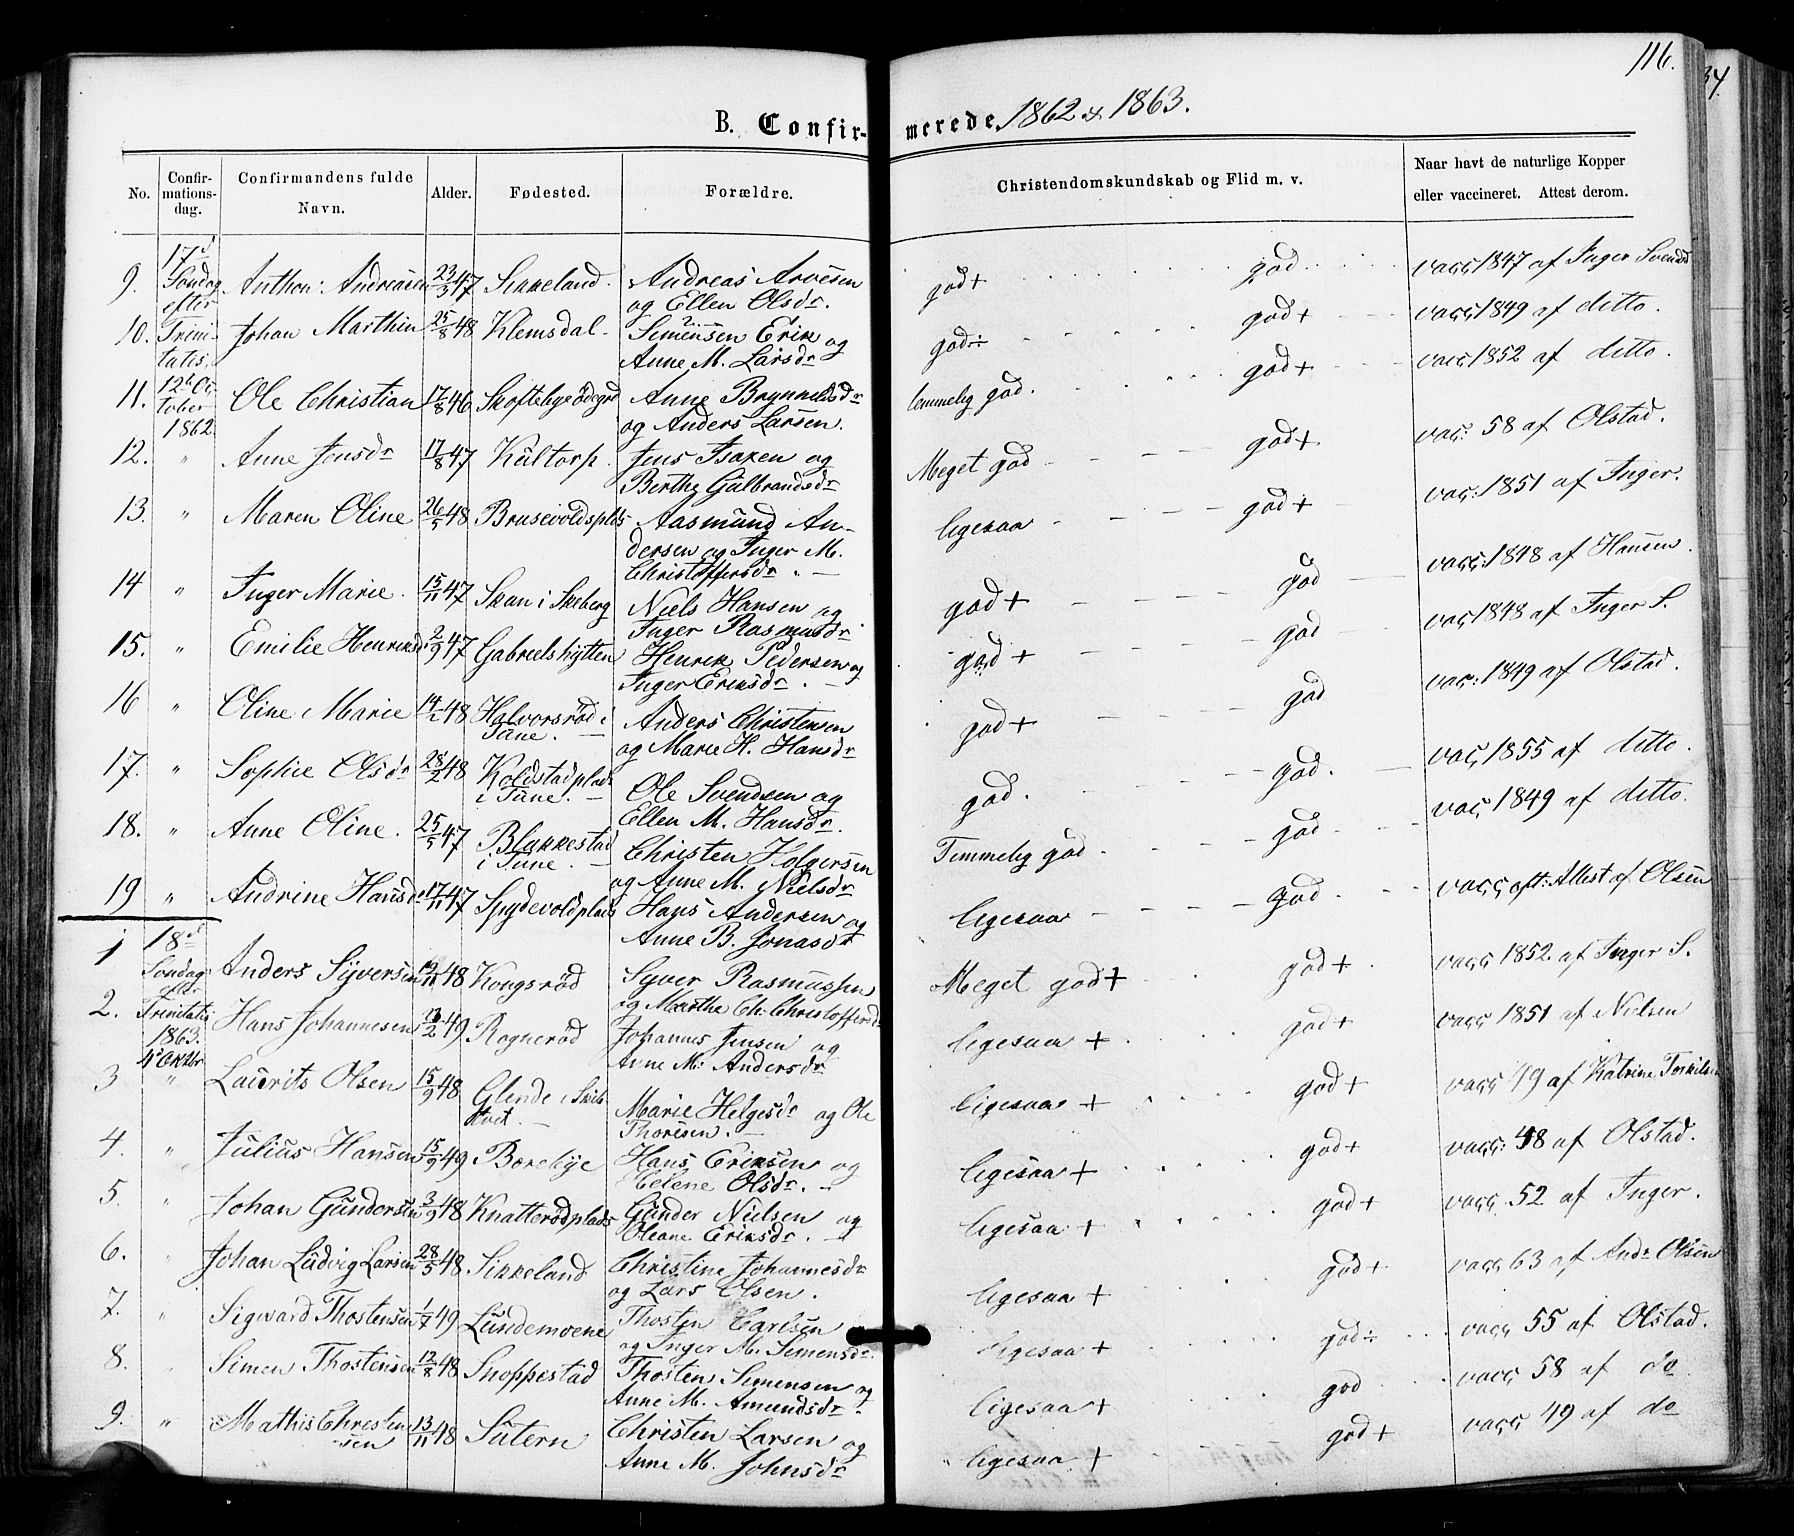 116.
34.
B. Confir- merede 1862 & 1863.
No. Confir-mations-dag. Confirmandens fulde Navn. Alder. Fødested. Forældre. Christendomskundskab og Flid m. v. Naar havt de naturlige Kopper eller vaccineret. Attest derom.
17d Søndag efter Trinitatis, 12te October 1862.
9. Anthon Andreasen 23/3 47 Sikkeland. Andreas Arvesen og Ellen Olsdr. god+ god vacc 1847 af Inger Svendsd
10. Johan Marthin 25/8 48 Klemsdal Simensen Erik og Anne M. Larsdr god÷ god+ vacc 1849 af ditto.
11. Ole Christian 17/8 46 Skoftebyeödegrd Anne Brynnelsdr og Anders Larsen. temmelig god. god+ vacc 1852 af ditto.
12. " Anne Jensdr 17/8 47 Kultorp. Jens Isaxen og Berthe Gulbrandsdr Meget god god+ vac: 58 af Olstad.
13. " Maren Oline 26/5 48 Brusevoldsplds Aasmund Andersen og Inger M. Christoffersdr. ligesaa god+ vac: 1851 af Inger.
14 " Inger Marie 15/11 47 Skan i Skeberg Niels Hansen og Inger Rasmusdr god+ god vacc: 1848 af Hansen.
15. " Emilie Henriksd 2/9 47 Gabrielshytten Henrik Pedersen og Inger Eriksdr. god+ god vacc 1848 af Inger S.
16 " Oline Marie 14/1 48 Halvorsröd i Tune. Anders Christensen og Marie H. Hansdr god+ god vac: 1849 af Olstad.
17. " Sophie Olsdr 28/2 48 Koldstadplads i Tune. Ole Svendsen og Ellen M. Hansdr. god. god. vac, 1855 af ditto.
18. " Anne Oline. 25/5 47 Blakkestad i Tune. Christen Holgersen og Anne M. Nielsdr Temmelig god. god. vac, 1849 af ditto.
19 " Andrine Hansdr 17/11 47 Spydevoldplads Hans Andersen og Anne B. Jonasdr ligesaa god. vacc aft: Attest af Olsen
18d Søndag efter Trinitatis 1863. 4d Oktbr
1 Anders Syversen 48 Kongsröd Syver Rasmussen og Marthe Ch. Christoffersdr Meget god+ god+ vacc 1852. af Inger S.
2. Hans Johannesen 49 Rognerød Johannes Jensen og Anne M. Andersdr ligesaa+ god+ vacc 1851 af Nielsen
3 " Lauerits Olsen 15/9 48 Glende i Skibtvet. Marie Helgesdr og Ole Thoresen. ligesaa+ god+ vacc 49 af Katrine Torkilsen
4. " Julius Hansen 15/9 49 Borebye Hans Eriksen og Helene Olsdr. ligesaa+ god+ vacc: 48 af Olstad.
5. " Johan Gundersen 3/9 48 Knatterödplads Gunder Nielsen og Oleane Eriksdr. ligesaa+ god+ vacc 52 af Inger.
6. " Johan Ludvig Larsen 28/5 48 Sikkeland Christine Johannesdr og Lars Olsen. ligesaa+ god+ vacc 63 af Andr Olsen
7. " Sigvard Thostensen 1/7 49 Lundemoene Thosten Carlsen og Inger M. Simensdr. ligesaa+ god÷ vacc 55 af Olstad.
8. " Simen Thostensen 12/8 48 Snoppestad Thosten Simensen og Anne M. Amundsdr. ligesaa+ god vacc 58 af do
9. " Mathis Christensen 13/11 48 Sutern Christen Larsen og Anne M. Johnsdr ligesaa+ god+ vacc 49 af do